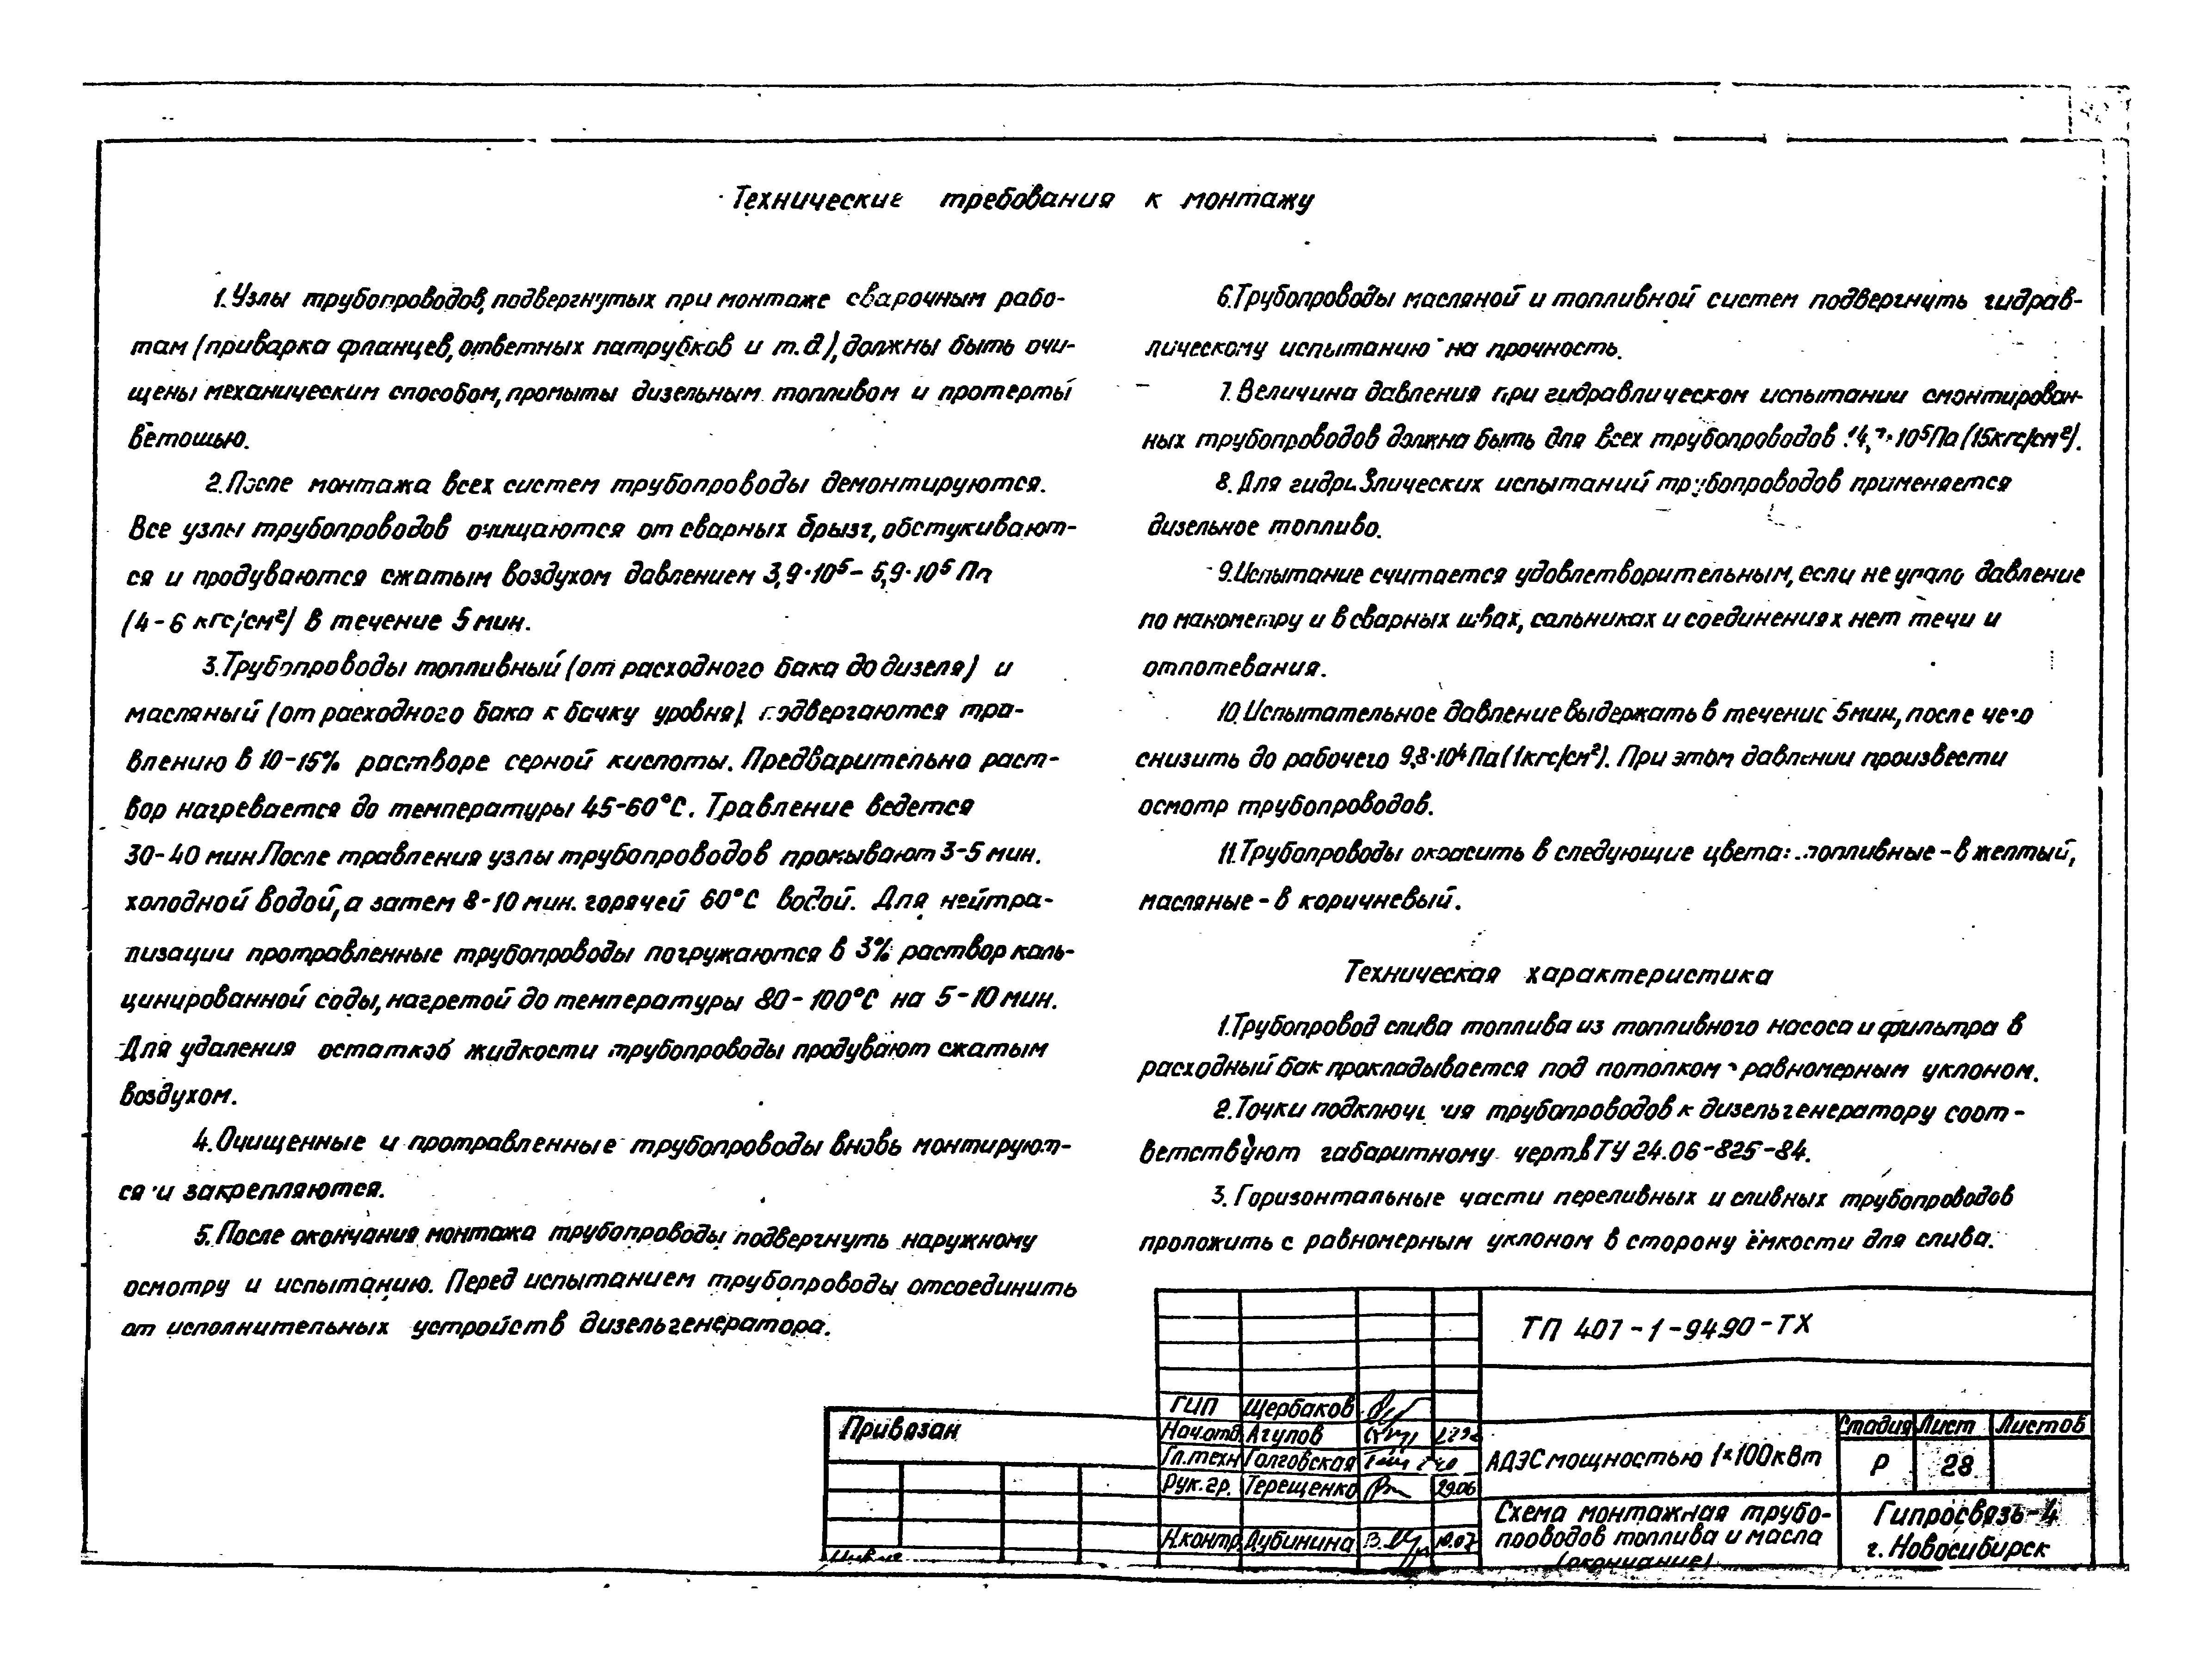 Технические требования к монтажу
1. Узлы трубопроводов, подвергнутых при монтаже сварочным рабо-
там (приварка фланцев, ответных патрубков и т.д.), должны быть очи-
щены механическим способом, промыты дизельным топливом и протерты
ветошью.
2. После монтажа всех систем трубопроводы демонтируются.
Все узлы трубопроводов очищаются от сварных брызг, обстукивают-
ся и продуваются сжатым воздухом давлением 3,9·10⁵ – 5,9·10⁵ Па
(4-6 кгс/см²) в течение 5 мин.
3. Трубопроводы топливный (от расходного бака до дизеля) и
масляный (от расходного бака к бачку уровня) подвергаются тра-
влению в 10-15% растворе серной кислоты. Предварительно раст-
вор нагревается до температуры 45-60°С. Травление ведется
30-40 мин После травления узлы трубопроводов промывают 3-5 мин.
холодной водой, а затем 8-10 мин. горячей 60°С водой. Для нейтра-
лизации протравленные трубопроводы погружаются в 3% раствор каль-
цинированной соды, нагретой до температуры 80-100°С на 5-10 мин.
Для удаления остатков жидкости трубопроводы продувают сжатым
воздухом.
4. Очищенные и протравленные трубопроводы вновь монтируют-
ся и закрепляются.
5. После окончания монтажа трубопроводы подвергнуть наружному
осмотру и испытанию. Перед испытанием трубопроводы отсоединить
от исполнительных устройств дизельгенератора.
6. Трубопроводы масляной и топливной систем подвергнуть гидрав-
лическому испытанию на прочность.
7. Величина давления при гидравлическом испытании смонтирован-
ных трубопроводов должна быть для всех трубопроводов 14,7·10⁵ Па (15кгс/см²).
8. Для гидравлических испытаний трубопроводов применяется
дизельное топливо.
9. Испытание считается удовлетворительным, если не упало давление
по манометру и в сварных швах, сальниках и соединениях нет течи и
отпотевания.
10. Испытательное давление выдержать в течение 5мин., после чего
снизить до рабочего 9,8·10⁴ Па (1кгс/см²). При этом давлении произвести
осмотр трубопроводов.
11. Трубопроводы окрасить в следующие цвета: топливные – в желтый,
масляные – в коричневый.
Техническая характеристика
1. Трубопровод слива топлива из топливного насоса и фильтра в
расходный бак прокладывается под потолком с равномерным уклоном.
2. Точки подключения трубопроводов к дизельгенератору соот-
ветствуют габаритному черт. в ТУ 24.06-825-84.
3. Горизонтальные части переливных и сливных трубопроводов
проложить с равномерным уклоном в сторону ёмкости для слива.
ТП 407-1-94.90-ТХ
Привязан
ГИП Щербаков
Нач.отд. Агулов
Гл.техн Голговская
Рук.гр. Терещенко 29.06
Н.контр. Дубинина 10.07
АДЭС мощностью 1×100кВт
Стадия Лист Листов
Р 28
Схема монтажная трубо-
проводов топлива и масла
(окончание)
Гипросвязь-4
г. Новосибирск